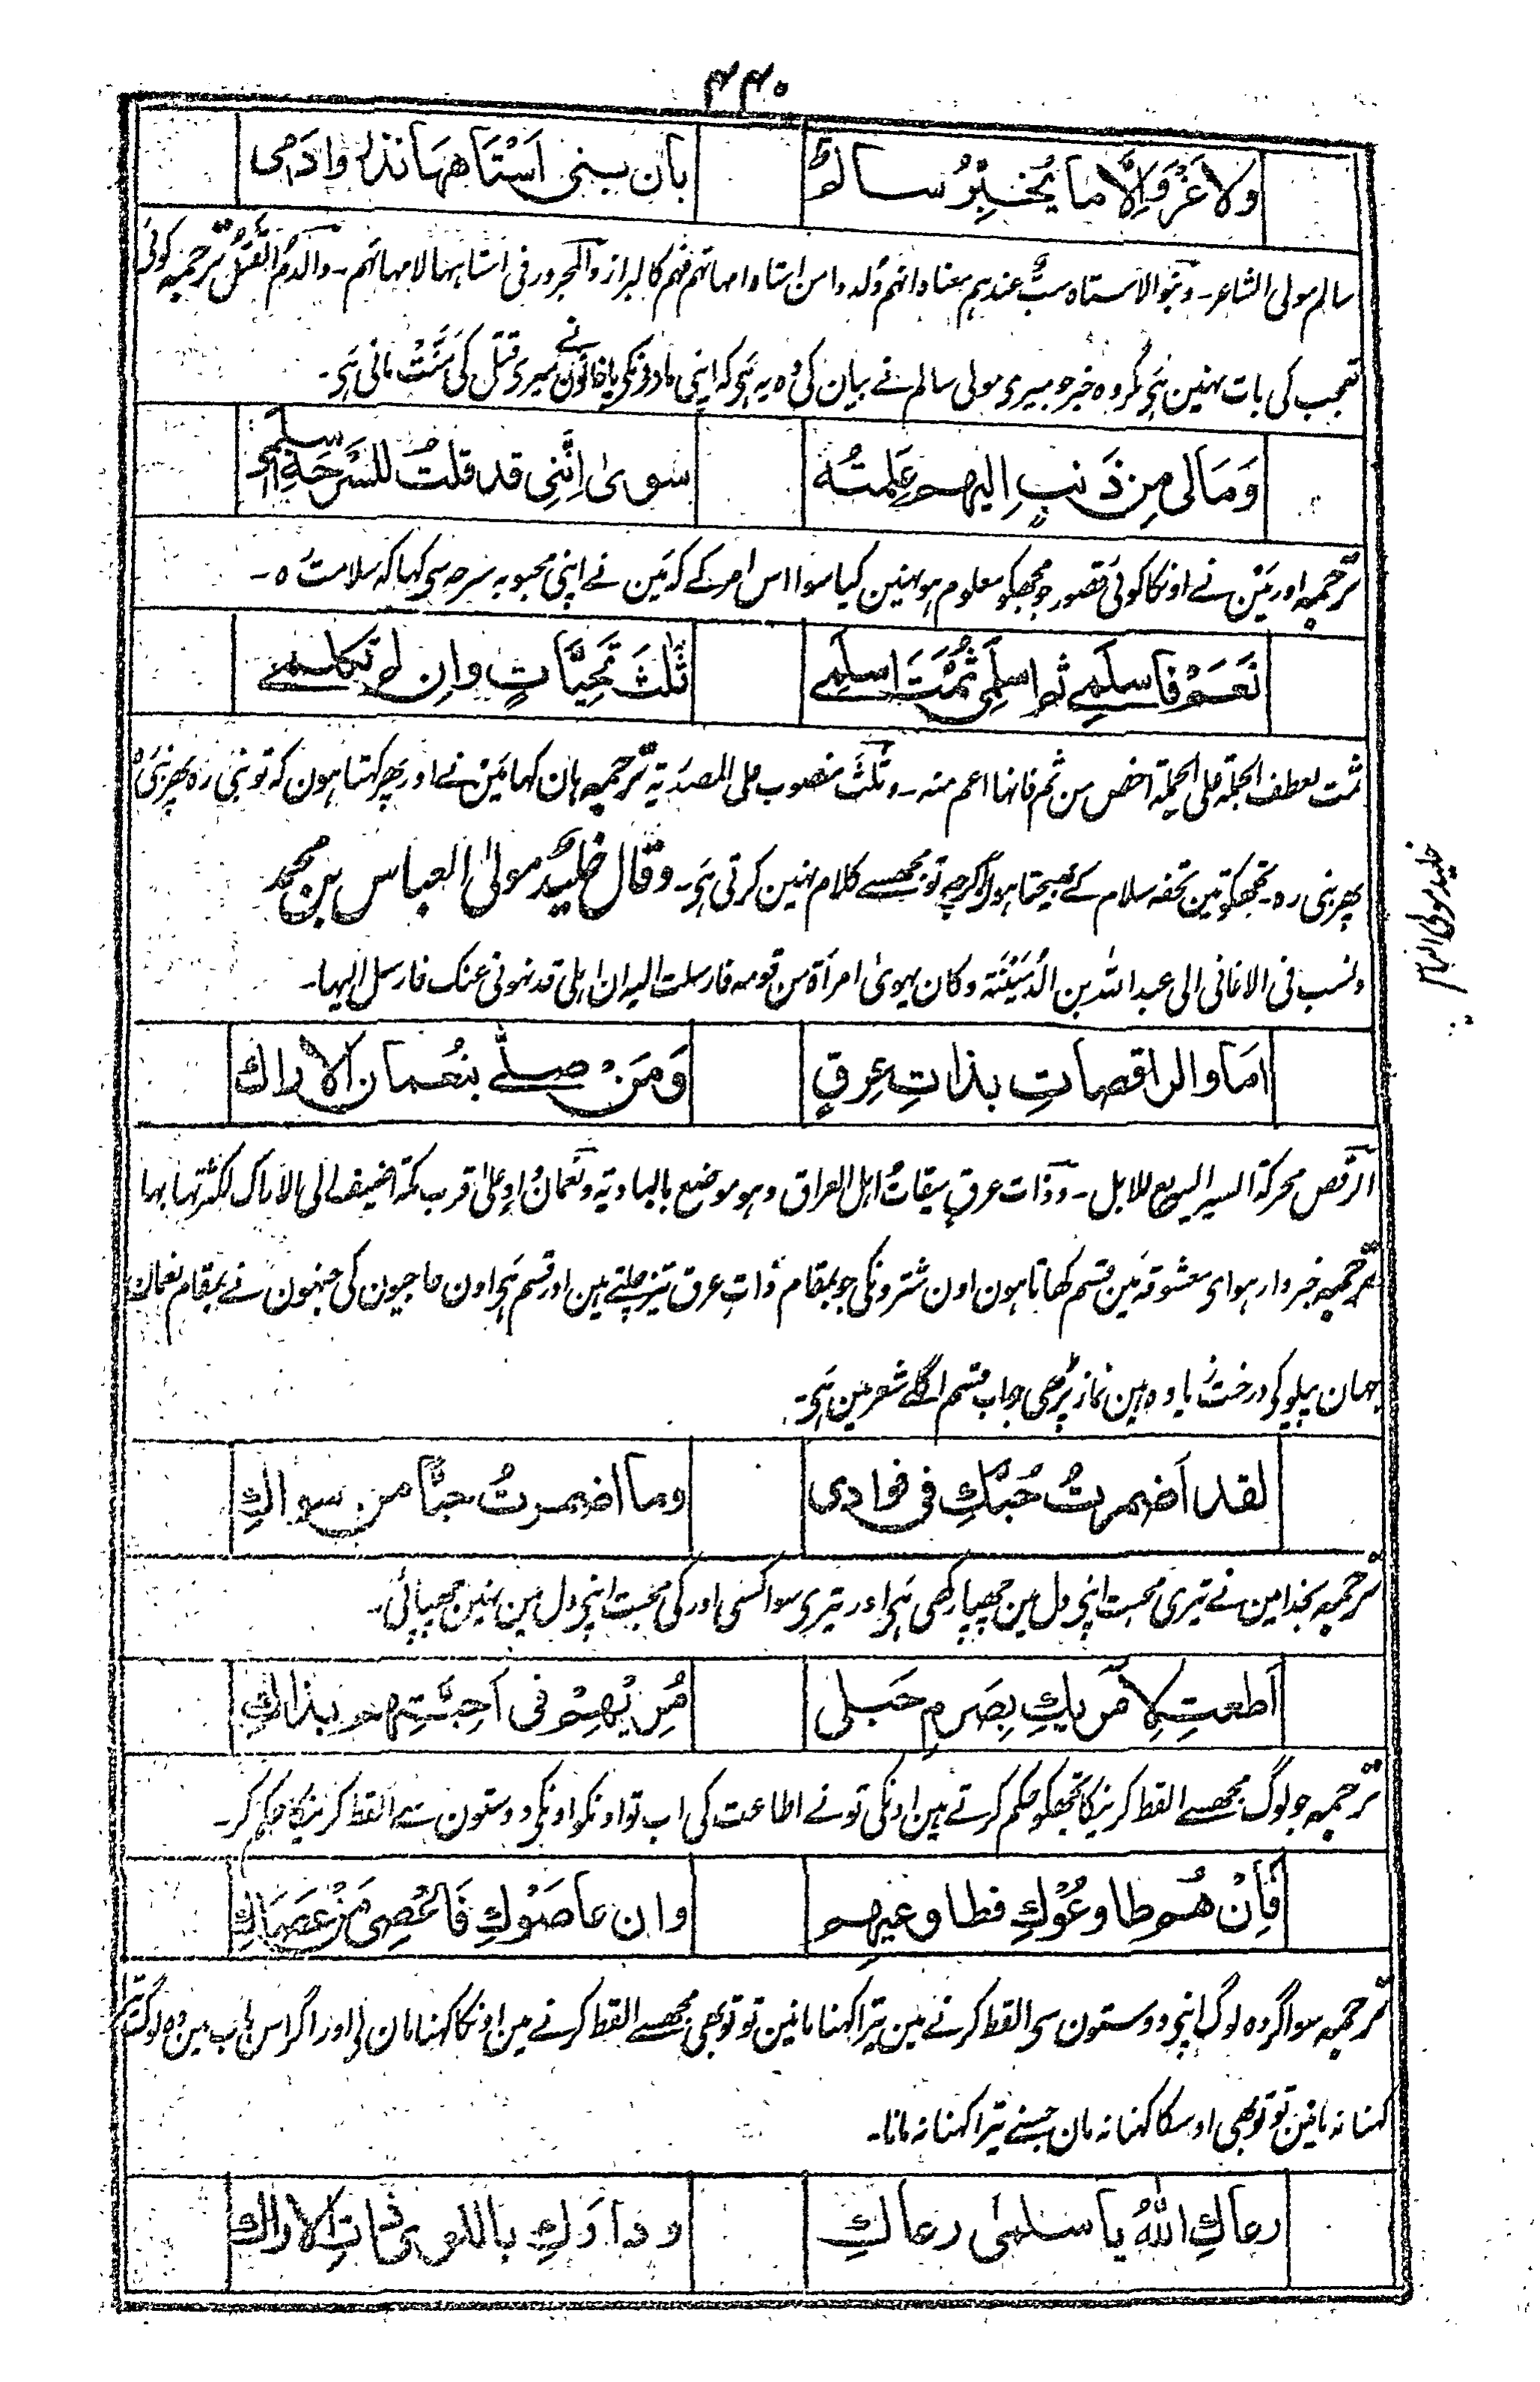 ۴۴۰
ولا غَرْوَ اِلَّا ما يُخَبِّرُ سالمٌ بان بنى اَسْتَاهِهَا نذروا دَمِى
سالم مولی الشاعر۔ وبنو الاستاه سبٌّ عندہم معناہ انہم وُلدوا من استاہ امہاتہم فہم کالبراز والمجرور فی استاہہا لامہاتہم۔ والدم القتل ترجمہ کوئی
تعجب کی بات نہین ہی مگر وہ خبر جو میری مولی سالم نے بیان کی وہ یہ ہی کہ اپنی مادرونکی پاخانون نے میری قتل کی مَنَّتْ مانی ہی۔
وَمَالى مِن ذَنبٍ اليهم عَلِمتُه سوىٰ اِنَّنِى قد قلتُ للسَّرحَةِ اسلمى
ترجمہ اور مَین نے اونکا کوئی قصور جو مجھکو معلوم ہو نہین کیا سوا اس امر کے کہ مَین نے اپنی محبوبہ سرحہ سی کہا کہ سلامت رہ۔
نَعَمْ فاسلمِى ثم اسلَمِى ثُمَّتَ اسلمِى ثلٰثَ تَحِيَّاتٍ وان لم تكلمى
ثمت لعطف الجملۃ علی الجملۃ اخص من ثم فانہا اعم منہ۔ وثلٰث منصوب علی المصدریۃ ترجمہ ہان کہا مَین نے اور پھر کہتا ہون کہ تو بنی رہ پھر بنی رہ
پھر بنی رہ۔ تجھکو تین تحفہ سلام کے بھیجتا ہون اگرچہ تو مجھسے کلام نہین کرتی ہی۔ وقال خليدٌ مولىٰ العباس بن محمد
ونسب فی الاغانی الی عبد اللہ بن الدُمَیْنَۃ وکان یہویٰ امرأۃ من قومہ فارسلت الیہ ان اہلی قد نہونی عنک فارسل الیہا۔
خليد مولى العباس
اَمَا والراقصاتِ بذاتِ عِرقٍ وَمَن صلّٰى بنُعمانِ الاراكِ
الرقص محرکۃ السیر السریع للابل۔ وذات عرق میقاتُ اہل العراق وہو موضع بالبادیۃ ونعمان وادٍ علیٰ قرب مکۃ اضیف الی الاراک لکثرتہا بہا
ترجمہ خبردار ہو ای معشوقہ مَین قسم کھاتا ہون اون شترونکی جو بمقام ذات عرق تیز چلتے ہین اور قسم ہی اون حاجیون کی جنہون نے بمقام نعمان
جہان پیلو کی درخت زیادہ ہین نماز پڑھی جواب قسم اگلے شعر مین ہی۔
لقد اَضمرتُ حُبَّكِ فى فؤادى وما اضمرتُ حبًّا من سواكِ
ترجمہ بخدا مین نے تیری محبت اپنی دل مین چھپا رکھی ہی اور تیری سوا کسی اور کی محبت اپنی دل مین نہین چھپائی۔
اَطعتِ لِاٰمريكِ بِصَرمِ حَبلى مُرِيْهِمْ فى اَحِبَّتِهم بذاكِ
ترجمہ جو لوگ مجھسے القط کرنیکا تجھکو حکم کرتے ہین اونکی تو نے اطاعت کی اب تو اونکو اونکی دوستون سے القط کرنیکا حکم کر۔
فَاِنْ هُم طاوعُوْكِ فطاوعيهم وان عاصَوْكِ فَاعْصِى مَنْ عَصَاكِ
ترجمہ سو اگر وہ لوگ اپنی دوستون سی القط کرنے مین تیرا کہنا مانین تو تو بھی مجھسے القط کرنے مین اونکا کہنا مان لی اور اگر اس باب مین وہ لوگ تیرا
کہنا نہ مانین تو تو بھی اوسکا کہنا نہ مان جسنے تیرا کہنا نہ مانا۔
رعاكِ اللهُ يا سلمىٰ رعاكِ وداركِ باللوى ذاتِ الاراكِ